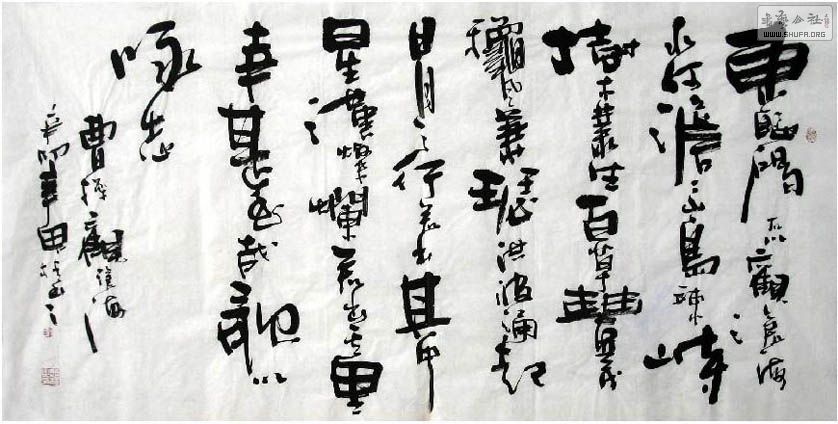 東臨碣石以觀滄海
水何澹々山島竦峙
樹木叢生百草豐茂
穐風蕭瑟洪波涌起
日月之行若出其中
星漢燦爛若出其里
幸甚至哉歌以
咏志
曹操觀滄海
辛卯年
書法公社
WWW.SHUFA.ORG